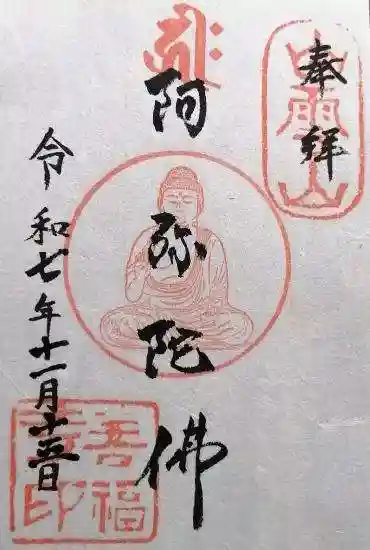 奉拝
阿弥陀佛
令和七年十一月十五日
善福
寺印